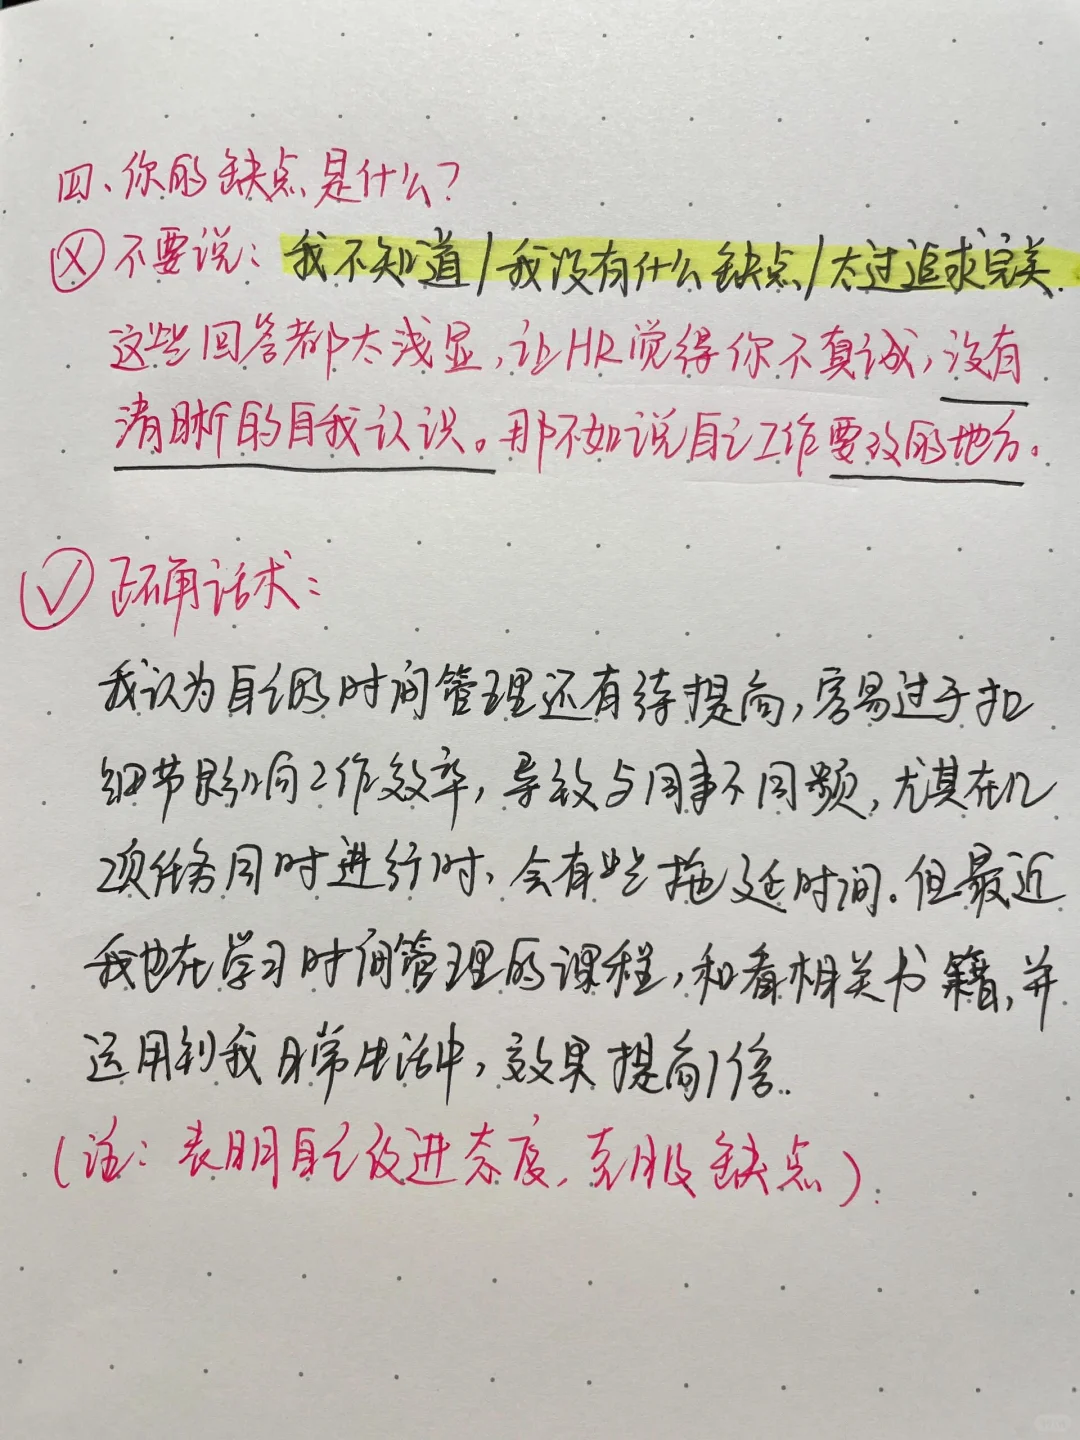 四、你的缺点是什么?
✗ 不要说: 我不知道/我没有什么缺点/太过追求完美.
这些回答都太浅显,让HR觉得你不真诚,没有
清晰的自我认识。那不如说自己工作要改的地方。
✓ 正确话术:
我认为自己的时间管理还有待提高,容易过于扣
细节影响工作效率,导致与同事不同频,尤其在几
项任务同时进行时,会有些拖延时间.但最近
我也在学习时间管理的课程,和看相关书籍,并
运用到我日常生活中,效果提高1倍..
(注: 表明自己改进态度,克服缺点)